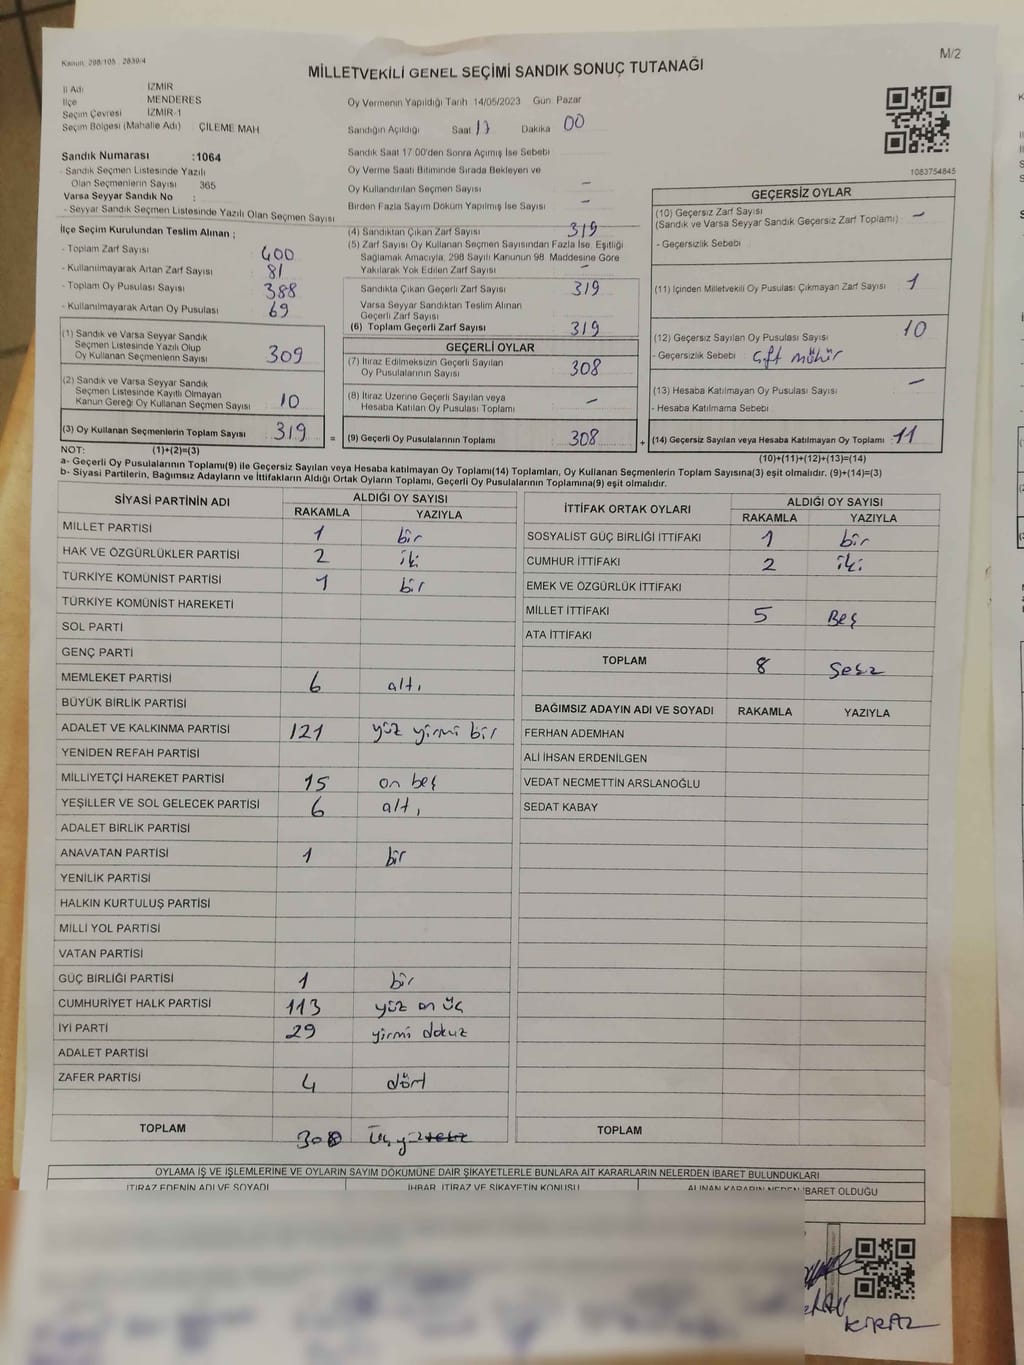 Kanun: 298/105 , 2839/4
M/2
MİLLETVEKİLİ GENEL SEÇİMİ SANDIK SONUÇ TUTANAĞI
İl Adı İZMİR
İlçe MENDERES
Seçim Çevresi İZMİR-1
Seçim Bölgesi (Mahalle Adı) ÇİLEME MAH
Sandık Numarası :1064
- Sandık Seçmen Listesinde Yazılı
Olan Seçmenlerin Sayısı 365
Varsa Seyyar Sandık No :
- Seyyar Sandık Seçmen Listesinde Yazılı Olan Seçmen Sayısı
Oy Vermenin Yapıldığı Tarih 14/05/2023 Gün Pazar
Sandığın Açıldığı Saat 17 Dakika 00
Sandık Saat 17:00'den Sonra Açımış İse Sebebi
Oy Verme Saati Bitiminde Sırada Bekleyen ve
Oy Kullandırılan Seçmen Sayısı –
Birden Fazla Sayım Döküm Yapılmış İse Sayısı –
1083754845
İlçe Seçim Kurulundan Teslim Alınan ;
- Toplam Zarf Sayısı 400
- Kullanılmayarak Artan Zarf Sayısı 81
- Toplam Oy Pusulası Sayısı 388
- Kullanılmayarak Artan Oy Pusulası 69
(1) Sandık ve Varsa Seyyar Sandık
Seçmen Listesinde Yazılı Olup
Oy Kullanan Seçmenlerin Sayısı 309
(2) Sandık ve Varsa Seyyar Sandık
Seçmen Listesinde Kayıtlı Olmayan
Kanun Gereği Oy Kullanan Seçmen Sayısı 10
(3) Oy Kullanan Seçmenlerin Toplam Sayısı 319 =
(4) Sandıktan Çıkan Zarf Sayısı 319
(5) Zarf Sayısı Oy Kullanan Seçmen Sayısından Fazla İse, Eşitliği
Sağlamak Amacıyla, 298 Sayılı Kanunun 98. Maddesine Göre
Yakılarak Yok Edilen Zarf Sayısı –
Sandıkta Çıkan Geçerli Zarf Sayısı 319
Varsa Seyyar Sandıktan Teslim Alınan
Geçerli Zarf Sayısı
(6) Toplam Geçerli Zarf Sayısı 319
GEÇERLİ OYLAR
(7) İtiraz Edilmeksizin Geçerli Sayılan
Oy Pusulalarının Sayısı 308
(8) İtiraz Üzerine Geçerli Sayılan veya
Hesaba Katılan Oy Pusulası Toplamı –
(9) Geçerli Oy Pusulalarının Toplamı 308 +
GEÇERSİZ OYLAR
(10) Geçersiz Zarf Sayısı
(Sandık ve Varsa Seyyar Sandık Geçersiz Zarf Toplamı) –
- Geçersizlik Sebebi
(11) İçinden Milletvekili Oy Pusulası Çıkmayan Zarf Sayısı 1
(12) Geçersiz Sayılan Oy Pusulası Sayısı 10
- Geçersizlik Sebebi Çift mühür
(13) Hesaba Katılmayan Oy Pusulası Sayısı –
- Hesaba Katılmama Sebebi
(14) Geçersiz Sayılan veya Hesaba Katılmayan Oy Toplamı 11
NOT: (1)+(2)=(3)
(10)+(11)+(12)+(13)=(14)
a- Geçerli Oy Pusulalarının Toplamı(9) ile Geçersiz Sayılan veya Hesaba katılmayan Oy Toplamı(14) Toplamları, Oy Kullanan Seçmenlerin Toplam Sayısına(3) eşit olmalıdır. (9)+(14)=(3)
b- Siyasi Partilerin, Bağımsız Adayların ve İttifakların Aldığı Ortak Oyların Toplamı, Geçerli Oy Pusulalarının Toplamına(9) eşit olmalıdır.
SİYASİ PARTİNİN ADI ALDIĞI OY SAYISI
RAKAMLA YAZIYLA
MİLLET PARTİSİ 1 bir
HAK VE ÖZGÜRLÜKLER PARTİSİ 2 iki
TÜRKİYE KOMÜNİST PARTİSİ 1 bir
TÜRKİYE KOMÜNİST HAREKETİ
SOL PARTİ
GENÇ PARTİ
MEMLEKET PARTİSİ 6 altı
BÜYÜK BİRLİK PARTİSİ
ADALET VE KALKINMA PARTİSİ 121 yüz yirmi bir
YENİDEN REFAH PARTİSİ
MİLLİYETÇİ HAREKET PARTİSİ 15 on beş
YEŞİLLER VE SOL GELECEK PARTİSİ 6 altı
ADALET BİRLİK PARTİSİ
ANAVATAN PARTİSİ 1 bir
YENİLİK PARTİSİ
HALKIN KURTULUŞ PARTİSİ
MİLLİ YOL PARTİSİ
VATAN PARTİSİ
GÜÇ BİRLİĞİ PARTİSİ 1 bir
CUMHURİYET HALK PARTİSİ 113 yüz on üç
İYİ PARTİ 29 yirmi dokuz
ADALET PARTİSİ
ZAFER PARTİSİ 4 dört
TOPLAM 308
İTTİFAK ORTAK OYLARI ALDIĞI OY SAYISI
RAKAMLA YAZIYLA
SOSYALİST GÜÇ BİRLİĞİ İTTİFAKI 1 bir
CUMHUR İTTİFAKI 2 iki
EMEK VE ÖZGÜRLÜK İTTİFAKI
MİLLET İTTİFAKI 5 Beş
ATA İTTİFAKI
TOPLAM 8 Sekiz
BAĞIMSIZ ADAYIN ADI VE SOYADI RAKAMLA YAZIYLA
FERHAN ADEMHAN
ALİ İHSAN ERDENİLGEN
VEDAT NECMETTİN ARSLANOĞLU
SEDAT KABAY
TOPLAM
OYLAMA İŞ VE İŞLEMLERİNE VE OYLARIN SAYIM DÖKÜMÜNE DAİR ŞİKAYETLERLE BUNLARA AİT KARARLARIN NELERDEN İBARET BULUNDUKLARI
İTİRAZ EDENİN ADI VE SOYADI İHBAR, İTİRAZ VE ŞİKAYETİN KONUSU ALINAN KARARIN NEDEN İBARET OLDUĞU
KİRAZ